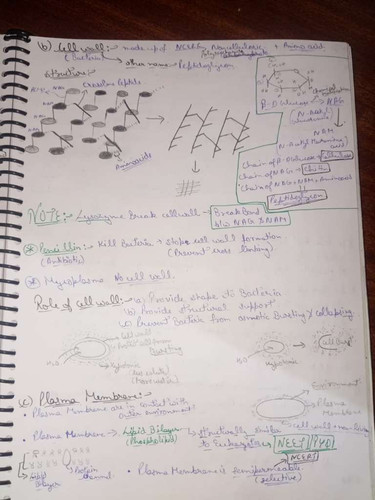 (b) Cell wall:- made up of NAG & NAM + Amino acid
(Bacteria) other name → Peptidoglycan
Structure:-
Crosslink Peptide
NAM
Aminoacids
β-D Glucose → NAG
NAM
Chain of β-D Glucose → Cellulose
Chain of NAG → Chitin
Chain of NAG + NAM + Aminoacid
Peptidoglycan
NOTE:- Lysozyme Break cell wall → Break Bond
b/w NAG & NAM
Penicillin:- Kill Bacteria & stops cell wall formation
(Antibiotic) (Prevent cross linking)
Mycoplasma No cell wall.
Role of cell wall:- (a) Provide shape to Bacteria
(b) Provide structural support
(c) Prevent Bacteria from osmotic Bursting & collapsing.
Cell wall
Bursting
H2O
Hypotonic
H2O
Hypotonic
Cell Burst
(c) Plasma Membrane:-
• Plasma Membrane are in contact with
outer environment
Environment
Plasma
Membrane
Cell wall
• Plasma Membrane → Lipid Bilayer → Structurally similar
(Phospholipid) to Eukaryotes
NEET PYQ
NCERT
Lipid
Bilayer
Protein
channel
• Plasma Membrane is semipermeable
(selective)